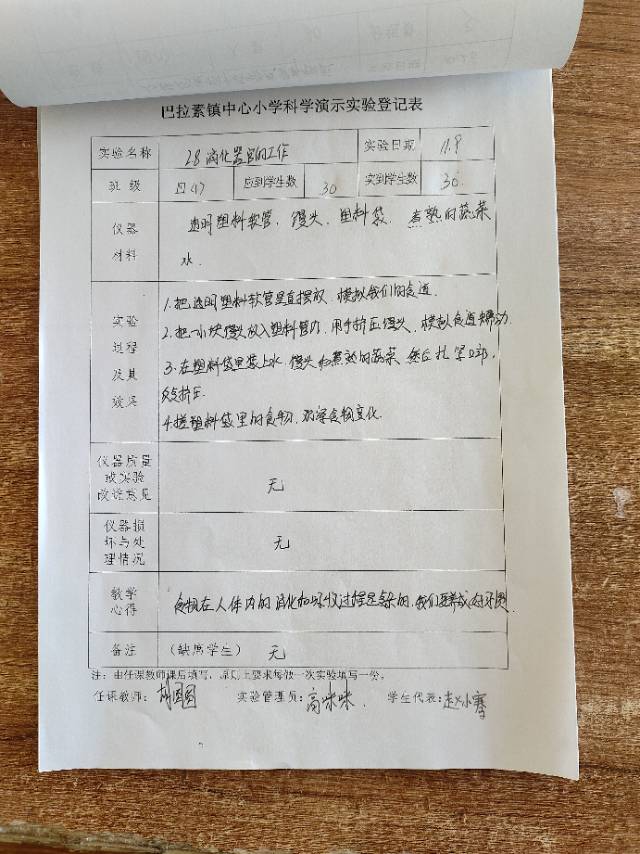 巴拉素镇中心小学科学演示实验登记表
实验名称 28 消化器官的工作 实验日期 11.9
班级 四(4) 应到学生数 30 实到学生数 30.
仪器材料 透明塑料软管、馒头、塑料袋、煮熟的蔬菜
水.
实验过程及其效果 1.把透明塑料软管竖直摆放,模拟我们的食道.
2.把一小块馒头放入塑料管内,用手挤压馒头,模拟食道蠕动.
3.在塑料袋里装上水,馒头和煮熟的蔬菜,然后扎紧口部,
反复挤压.
4.搓塑料袋里的食物,观察食物变化.
仪器质量或实验改进意见 无
仪器损坏与处理情况 无
教学心得 食物在人体内的消化和吸收过程是复杂的,我们要养成好习惯.
备注 (缺席学生) 无
注:由任课教师课后填写,原则上要求每做一次实验填写一份。
任课教师: 胡圆圆 实验管理员: 高咪咪. 学生代表: 赵小骞